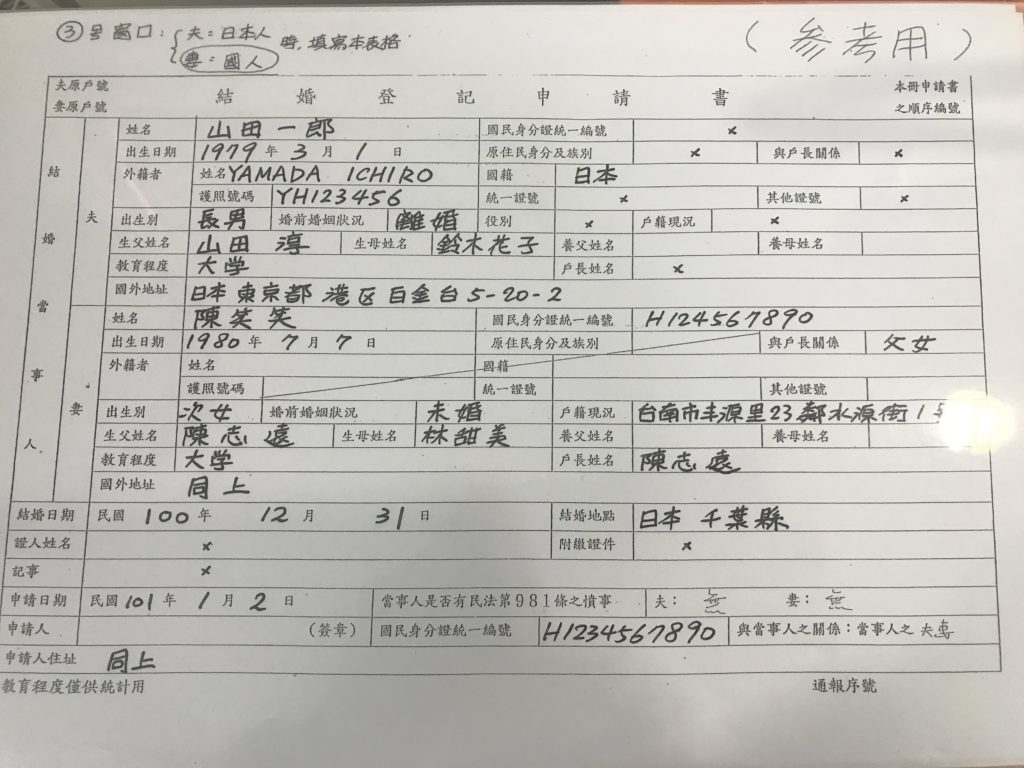 ③号窗口:{夫:日本人 時,填寫本表格 (参考用)
妻:國人
夫原戶號 結婚登記申請書 本冊申請書
妻原戶號 之順序編號
結婚當事人
夫
姓名 山田一郎 國民身分證統一編號 ×
出生日期 1979年3月1日 原住民身分及族別 × 與戶長關係 ×
外籍者 姓名 YAMADA ICHIRO 國籍 日本
護照號碼 YH123456 統一證號 × 其他證號 ×
出生別 長男 婚前婚姻狀況 離婚 役別 × 戶籍現況 ×
生父姓名 山田 淳 生母姓名 鈴木花子 養父姓名 養母姓名
教育程度 大学 戶長姓名 ×
國外地址 日本東京都港区白金台5-20-2
妻
姓名 陳笑笑 國民身分證統一編號 H124567890
出生日期 1980年7月7日 原住民身分及族別 與戶長關係 父女
外籍者 姓名 國籍
護照號碼 統一證號 其他證號
出生別 次女 婚前婚姻狀況 未婚 戶籍現況 台南市丰源里23鄰水源街1
生父姓名 陳志遠 生母姓名 林甜美 養父姓名 養母姓名
教育程度 大学 戶長姓名 陳志遠
國外地址 同上
結婚日期 民國100年12月31日 結婚地點 日本 千葉縣
證人姓名 × 附繳證件 ×
記事 ×
申請日期 民國101年1月2日 當事人是否有民法第981條之情事 夫:無 妻:無
申請人 (簽章) 國民身分證統一編號 H1234567890 與當事人之關係:當事人之夫妻
申請人住址 同上
教育程度僅供統計用 通報序號